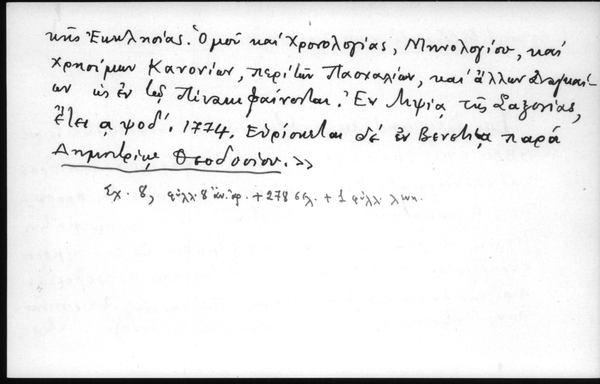 κῆς Ἐκκλησίας. Ὁμοῦ καί Χρονολογίας, Μηνολογίου, καί
χρησίμων Κανονίων, περί τῶν Πασχαλίων, καί ἄλλων ἀναγκαί-
ων ὡς ἐν τῷ Πίνακι φαίνονται. Ἐν Λιψίᾳ τῆς Σαξονίας,
Ἔτει αψοδ΄. 1774. Εὑρίσκεται δέ ἐν Βενετίᾳ παρά
Δημητρίῳ Θεοδοσίου.»
Σχ. 8, φύλλ. 8 ἀν. ἀρ. + 278 σελ. + 1 φύλλ. λευκ.